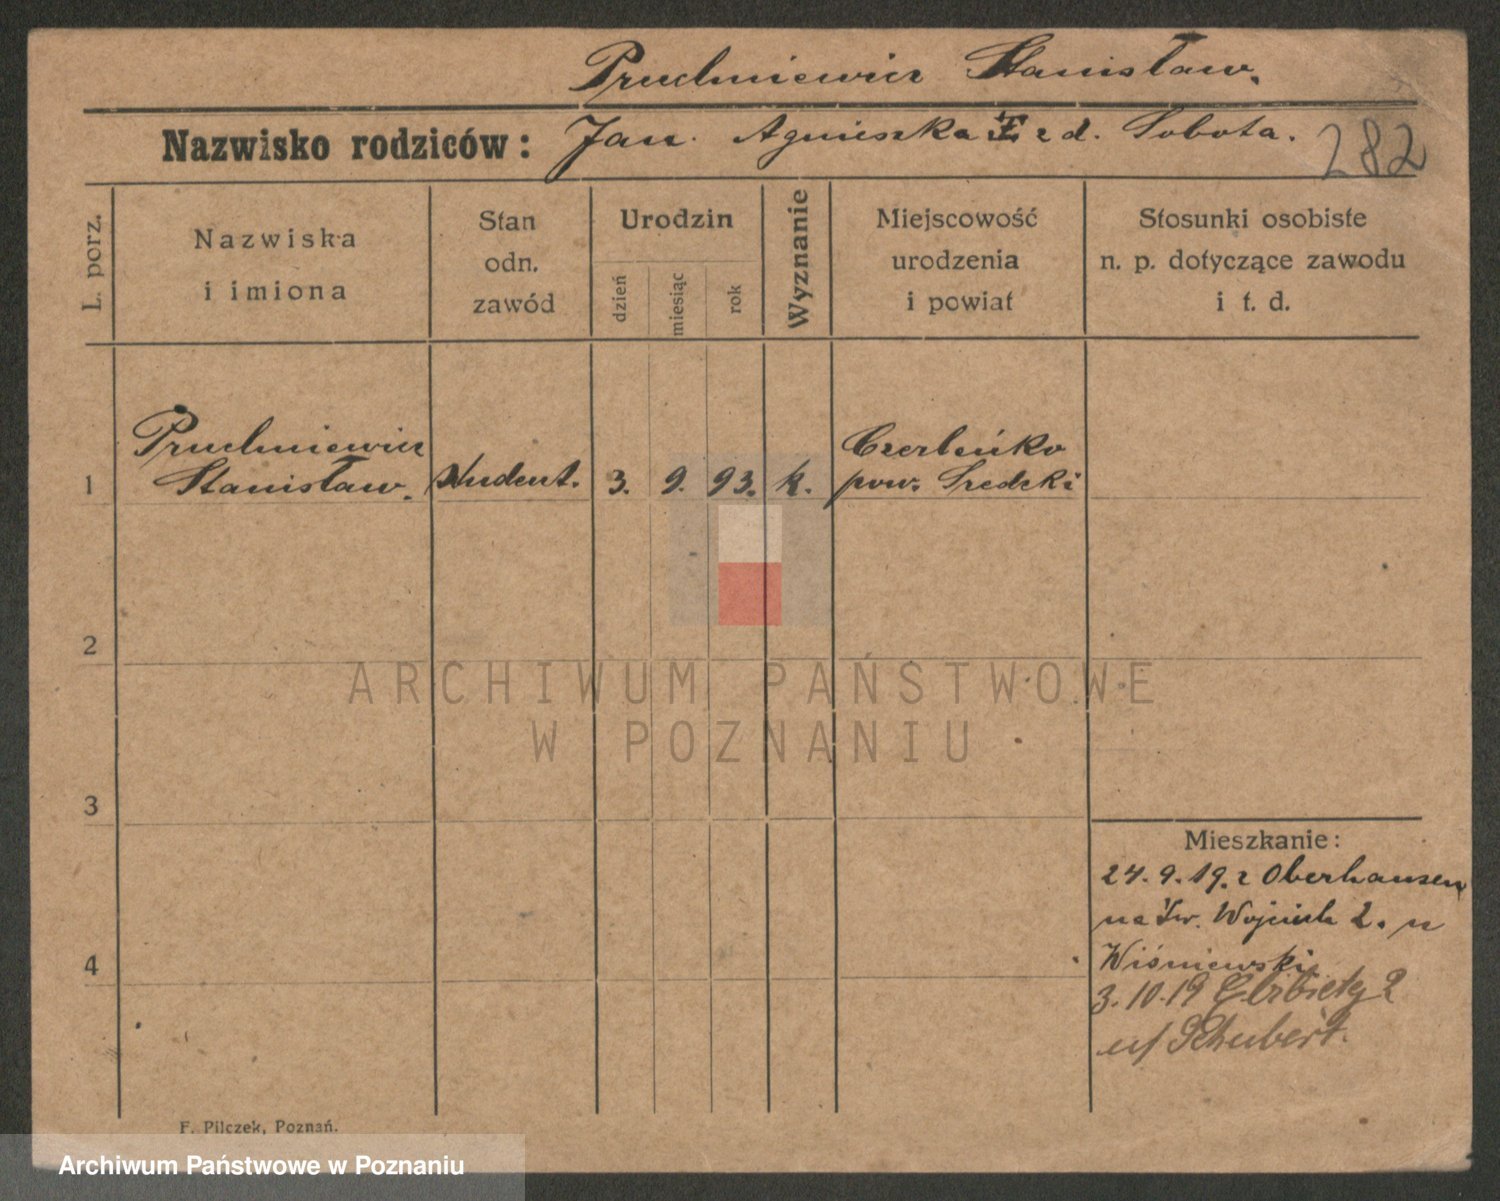 Pruchniewicz Stanisław.
Nazwisko rodziców: Jan. Agnieszka z d. Sobota.
282
L. porz.
Nazwiska
i imiona
Stan
odn.
zawód
Urodzin
dzień
miesiąc
rok
Wyznanie
Miejscowość
urodzenia
i powiat
Stosunki osobiste
n. p. dotyczące zawodu
i t. d.
1
Pruchniewicz
Stanisław.
student.
3.
9.
93.
k.
Czerleńko
pow. Sredzki
2
3
4
Mieszkanie:
24.9.19. z Oberhausen
na Św. Wojciech 2. u
Wiśniewski
3.10.19 Elżbiety 2
u/ Schubert.
ARCHIWUM PAŃSTWOWE
W POZNANIU
F. Pilczek, Poznań.
Archiwum Państwowe w Poznaniu